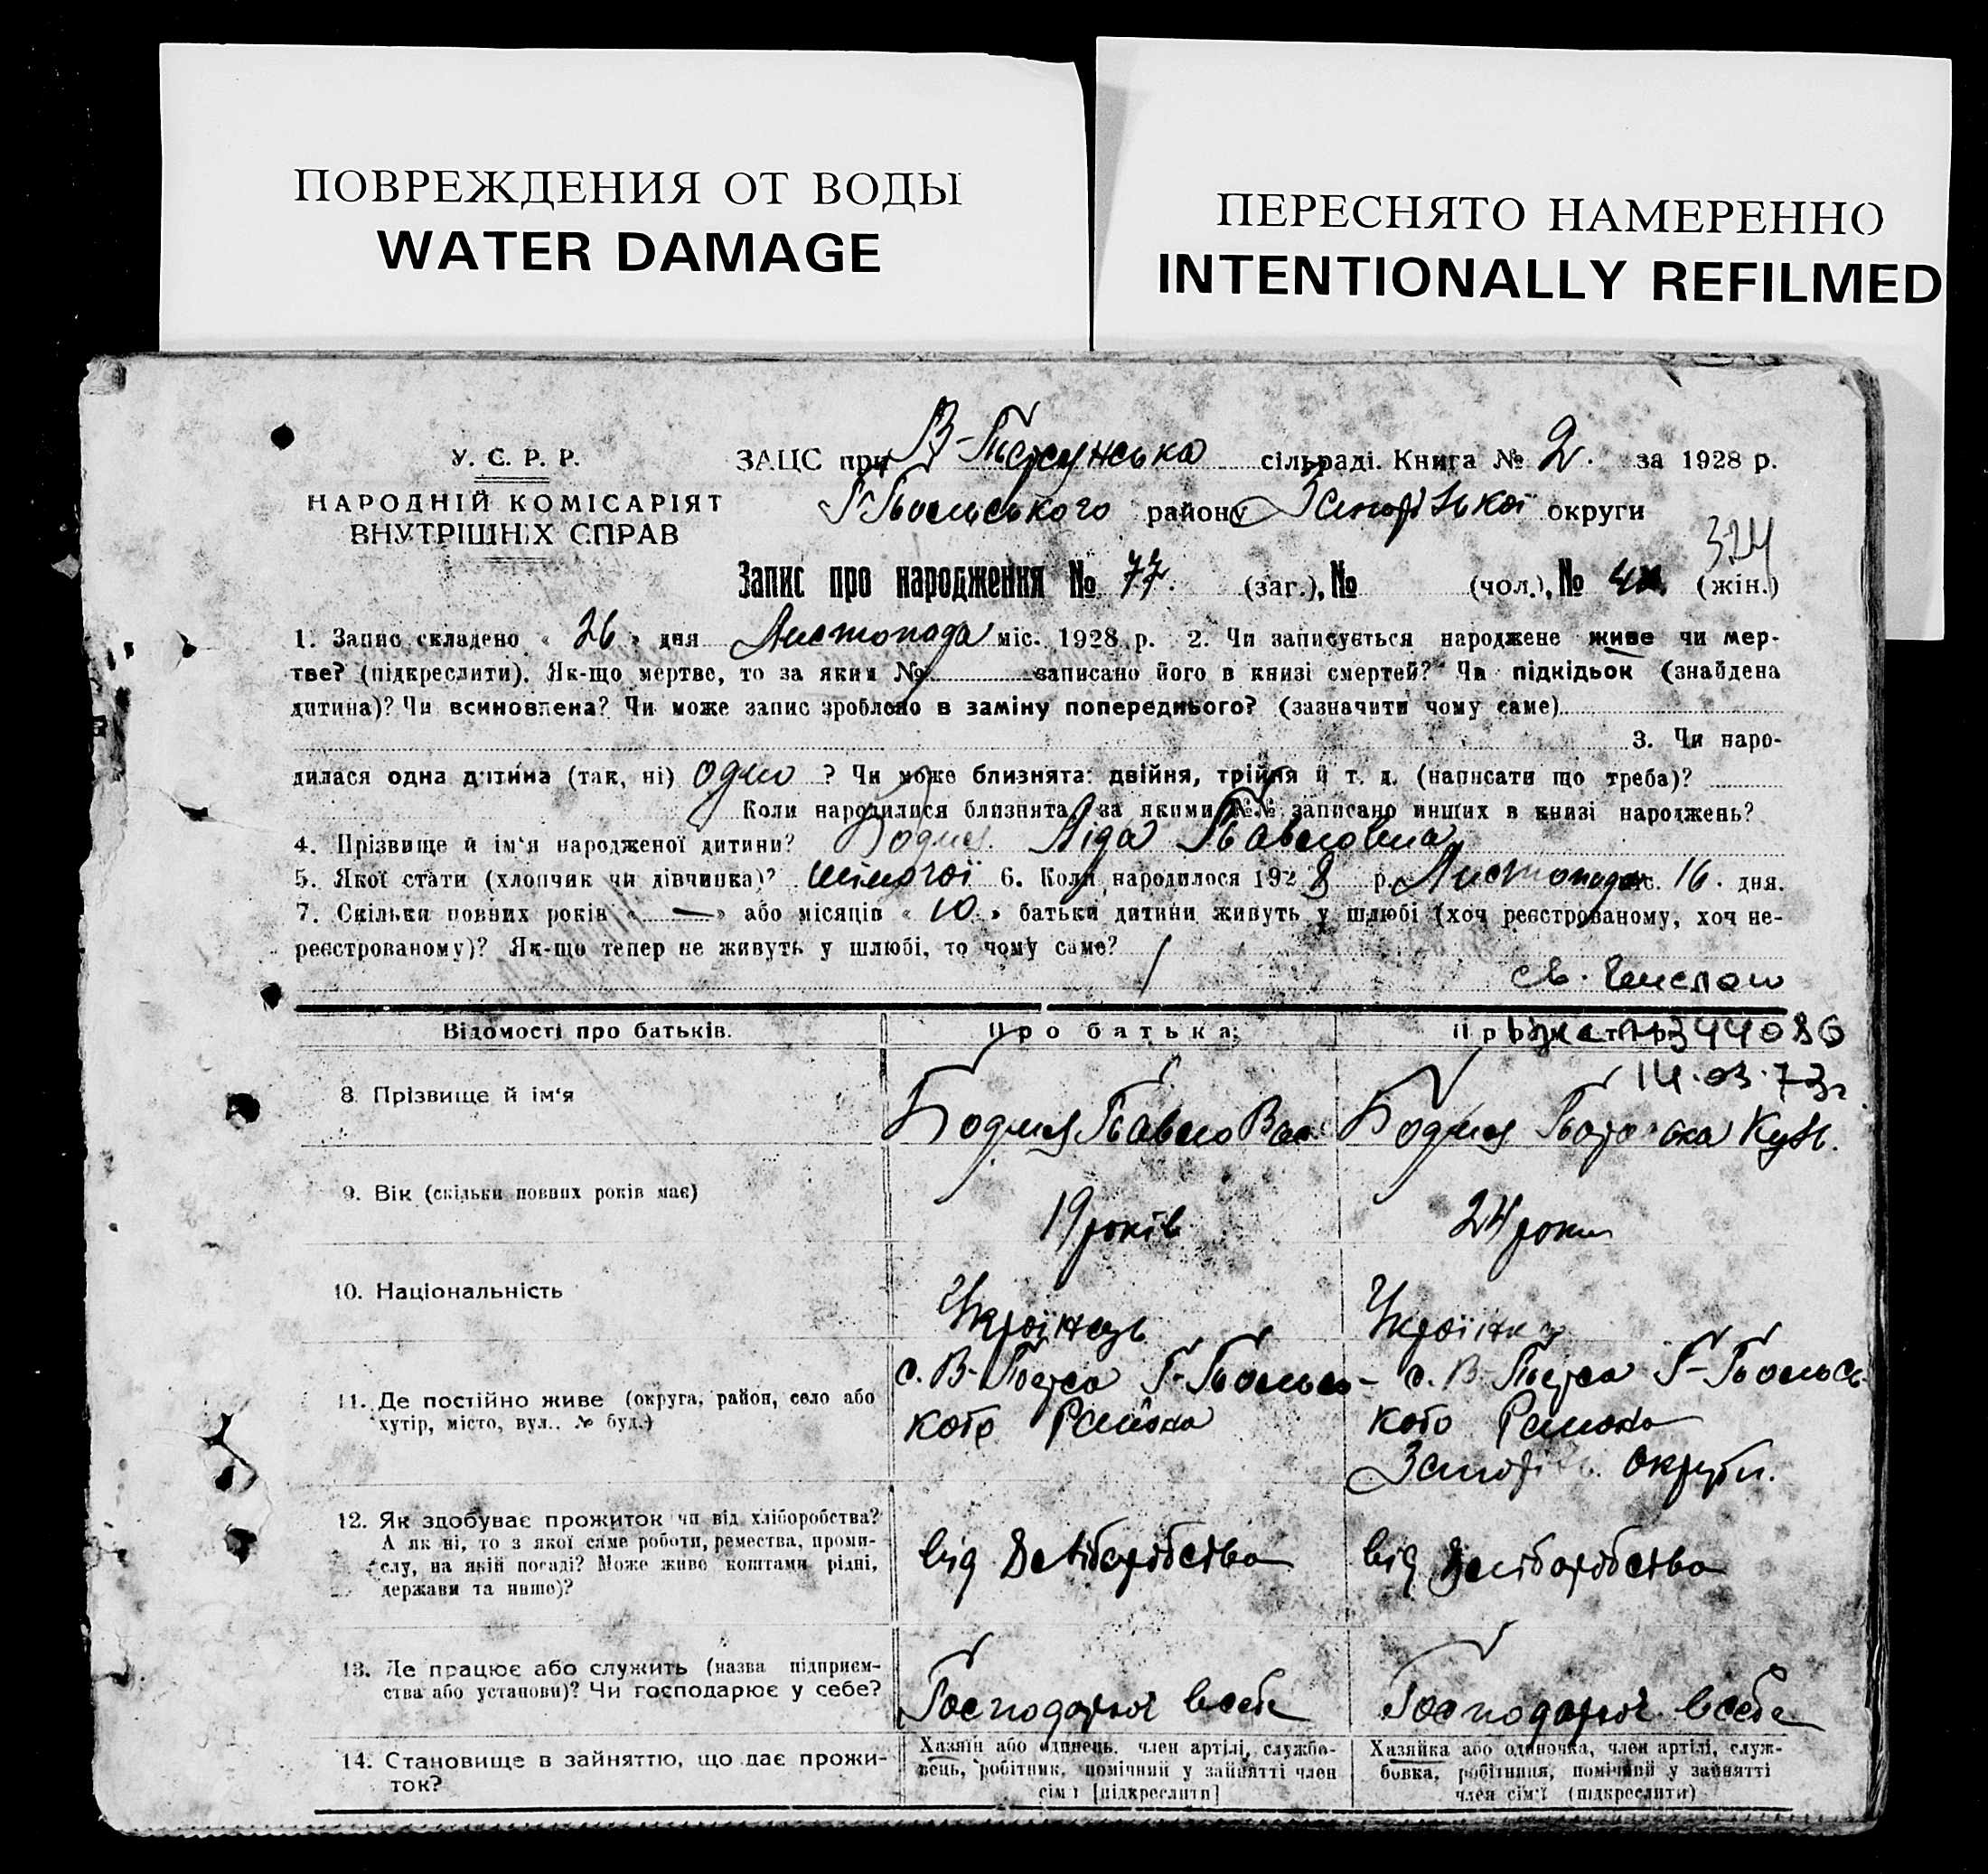 ПОВРЕЖДЕНИЯ ОТ ВОДЫ
WATER DAMAGE
ПЕРЕСНЯТО НАМЕРЕННО
INTENTIONALLY REFILMED
У. С. Р. Р.
НАРОДНІЙ КОМІСАРІЯТ
ВНУТРІШНІХ СПРАВ
ЗАЦС при сільраді. Книга № 2. за 1928 р.
району округи
324
Запис про народження № 77. (заг.), № (чол.), № (жін.)
1. Запис складено « 26 » дня Листопада міс. 1928 р. 2. Чи записується народжене живе чи мер-
тве? (підкреслити). Як-що мертве, то за яким № записано його в книзі смертей? Чи підкідьок (знайдена
дитина)? Чи всиновлена? Чи може запис зроблено в заміну попереднього? (зазначити чому саме)
3. Чи наро-
дилася одна дитина (так, ні) одно ? Чи може близнята: двійня, трійня й т. д. (написати що треба)?
Коли народилися близнята, за якими №№ записано инших в книзі народжень?
4. Прізвище й ім'я народженої дитини? Бодня Ліда Павловна
5. Якої стати (хлопчик чи дівчинка)? жіночої 6. Коли народилося 1928 р. Листопада міс. 16. дня.
7. Скільки повних років « — » або місяців « 10 » батьки дитини живуть у шлюбі (хоч реєстрованому, хоч не-
реєстрованому)? Як-що тепер не живуть у шлюбі, то чому саме?
св.
Відомості про батьків. Про батька: 344086
14.03.73г
8 Прізвище й ім'я Бодня Павло Вас Бодня Кузь.
9. Вік (скільки повних років має) 19 років 24 роки
10. Національність Українець Українка
11. Де постійно живе (округа, район, село або
хутір, місто, вул., № буд.)
кого Району кого Району
округи.
12. Як здобуває прожиток чи від хліборобства?
А як ні, то з якої саме роботи, ремества, проми-
слу, на якій посаді? Може живе коштами рідні,
держави та инше)?
від Хліборобства від Хліборобства
13. Де працює або служить (назва підприєм-
ства або установи)? Чи господарює у себе?
Господарює в себе Господарює в себе
14. Становище в зайняттю, що дає прожи-
ток?
Хазяїн або одинець, член артілі, службо-
вець, робітник, помічний у зайнятті член
сім'ї [підкреслити]
Хазяйка або одиночка, член артілі, служ-
бовка, робітниця, помічний у зайнятті
член сім'ї (підкреслити)